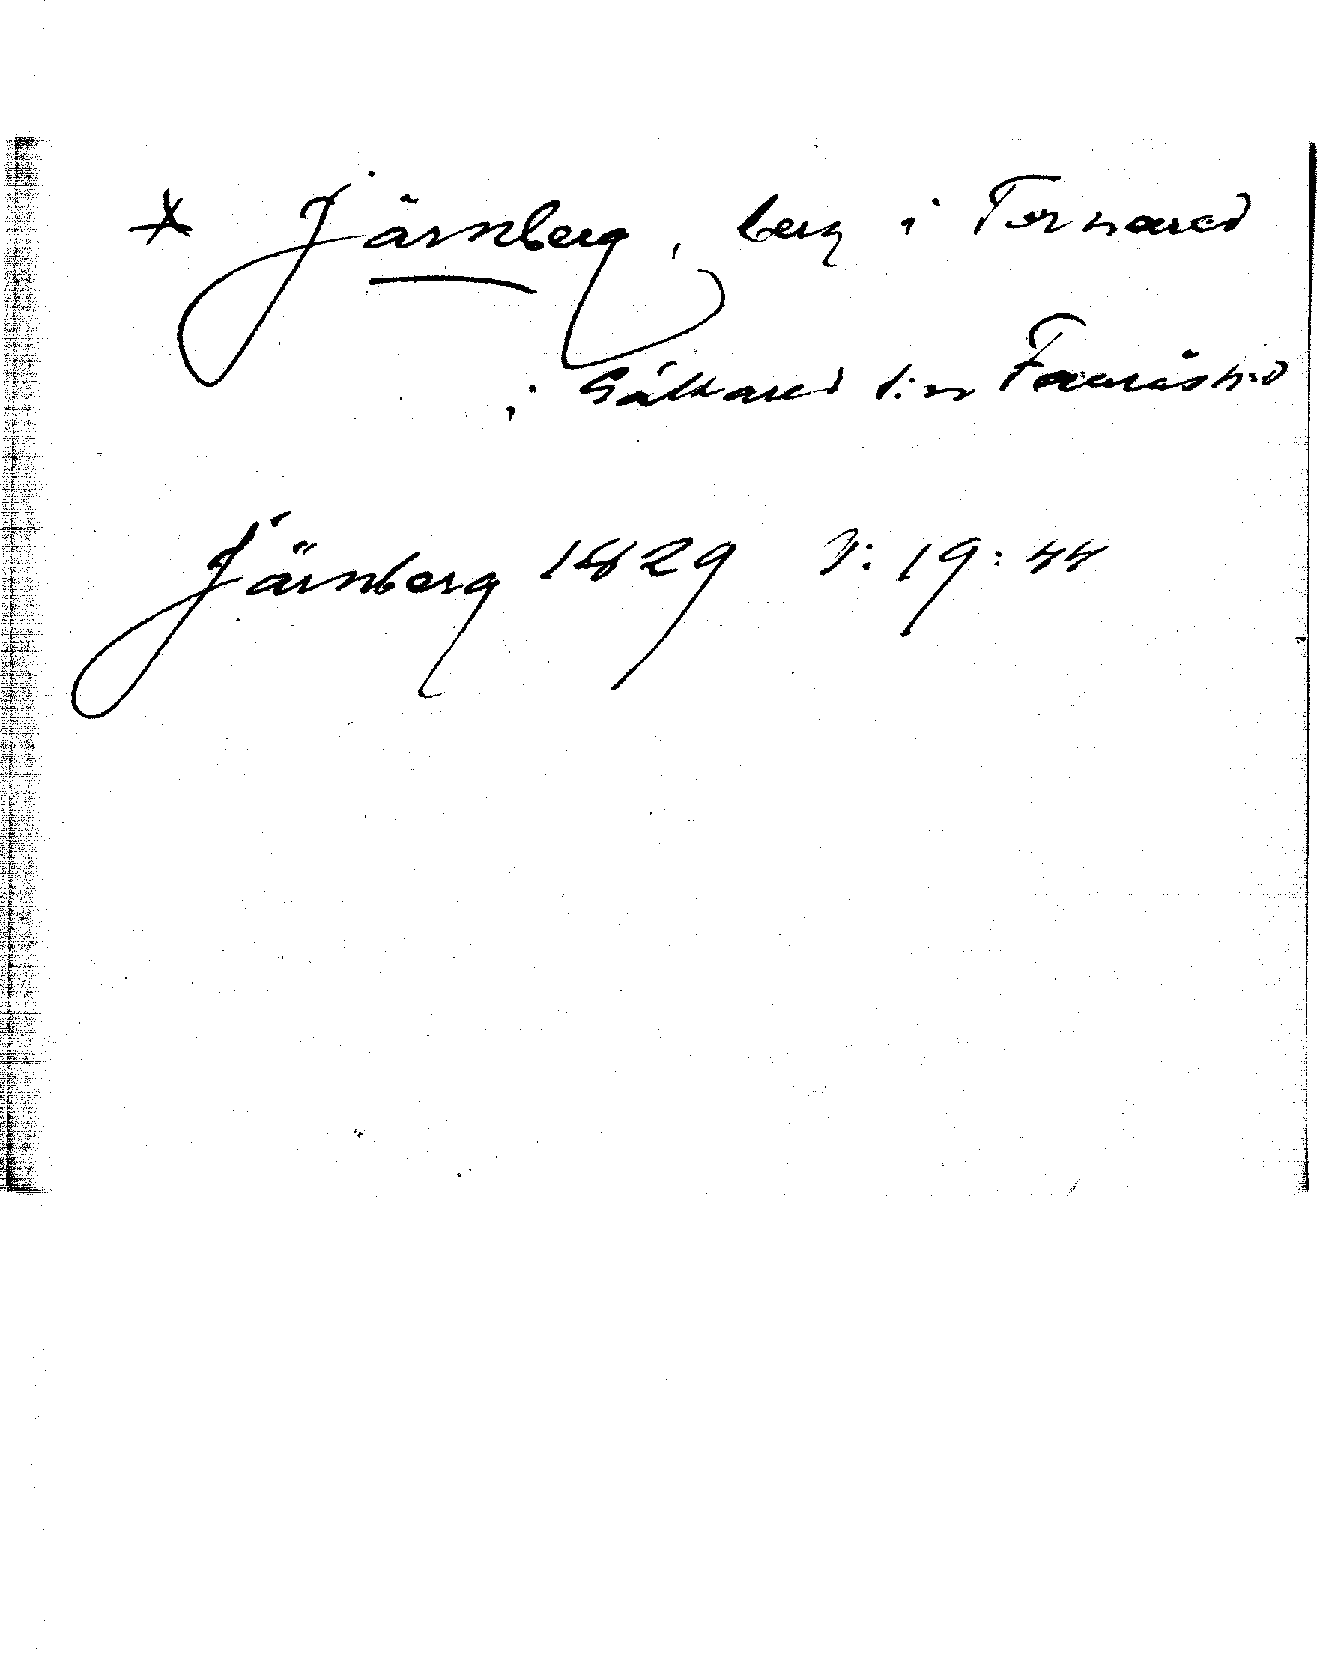 * Järnberg, berg i Tornared
i Gällared s:n Faurås h:d
Järnberg 1829 J: 19: 44